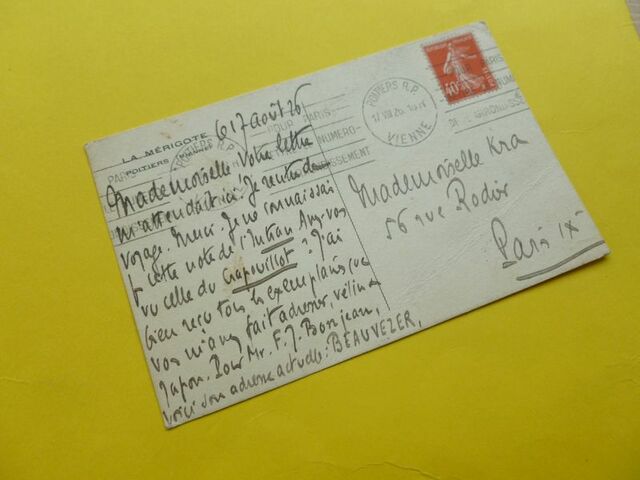 LA MÉRIGOTE
POITIERS
17 août 26
Mademoiselle Votre lettre
m'attendait ici. Je rentre de
voyage. Merci. Je ne connaissais
pas cette note de l'Intran. Avez-vous
vu celle du Crapouillot? J'ai
bien reçu tous les exemplaires que
vous m'avez fait adresser, vélin &
Japon. Pour Mr. F. J. Bonjean,
voici son adresse actuelle: BEAUVEZER,
POITIERS R.P.
17 VIII 26
VIENNE
PARIS
POUR
NUMERO-
ISSEMENT
40c
Mademoiselle Kra
56 rue Rodier
Paris IXe